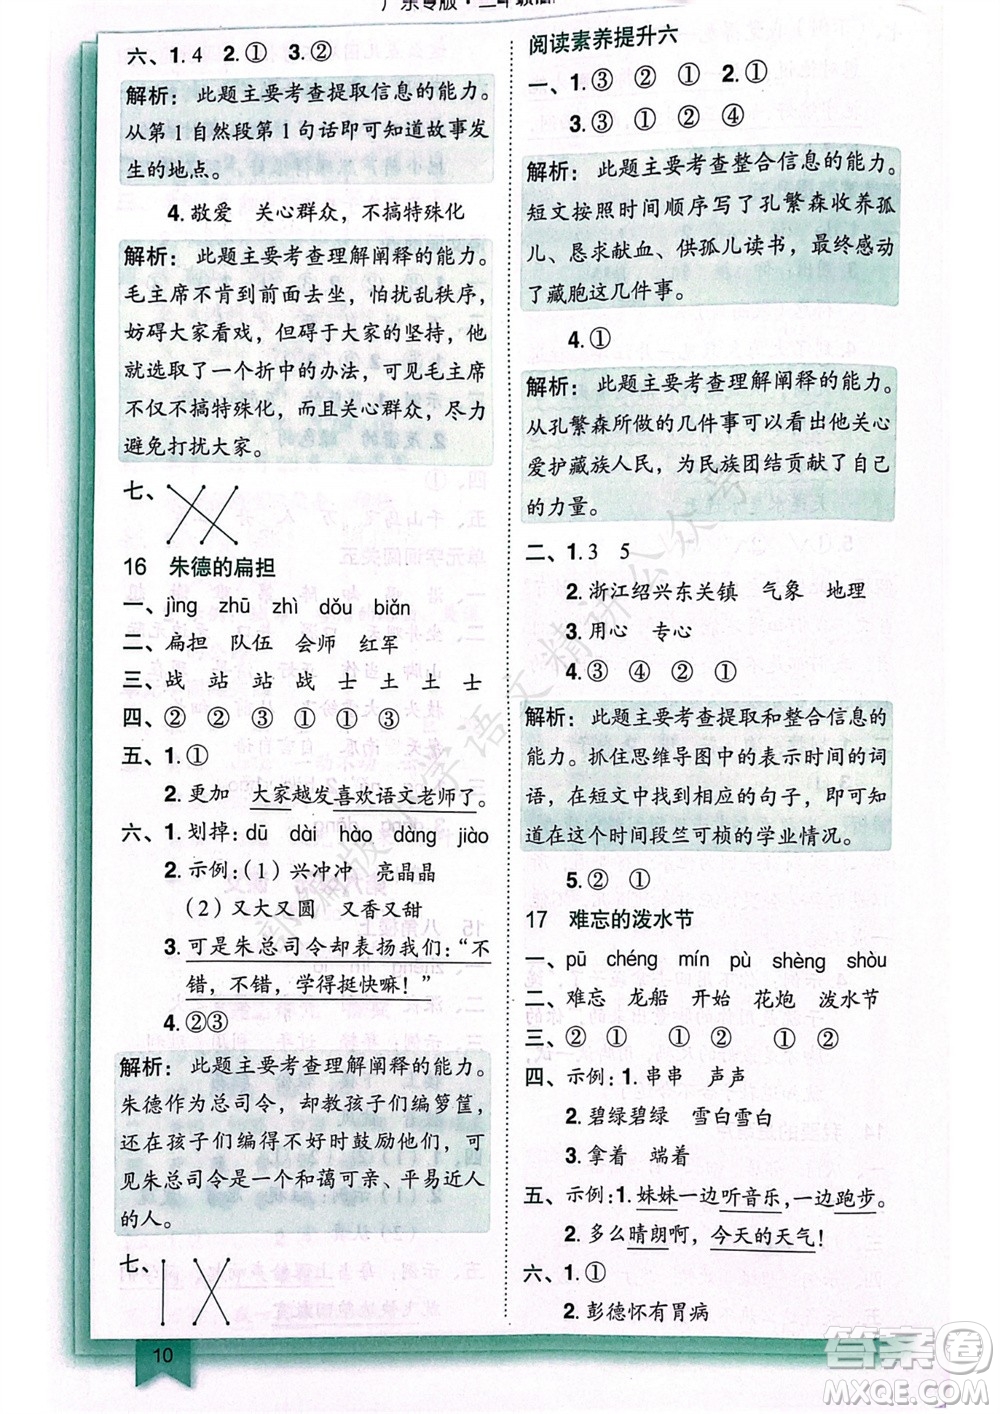 六、1.4 2.① 3.②
解析：此题主要考查提取信息的能力。
从第1自然段第1句话即可知道故事发
生的地点。
4.敬爱 关心群众，不搞特殊化
解析：此题主要考查理解阐释的能力。
毛主席不肯到前面去坐，怕扰乱秩序，
妨碍大家看戏，但碍于大家的坚持，他
采取了一个折中的办法，可见毛主席
不仅不搞特殊化，而且关心群众，尽力
避免打扰大家。
七、
16 朱德的扁担
一、jìng zhū zhì dǒu biǎn
二、扁担 队伍 会师 红军
三、战 站 站 战 士 土 土 士
四、② ② ③ ① ① ③
五、1.①
2.更加 大家越发喜欢语文老师了。
六、1.划掉：dū dài hào dàng jiào
2.示例：（1）兴冲冲 亮晶晶
（2）又大又圆 又香又甜
3.可是朱总司令却表扬我们：“不
错，不错，学得挺快嘛！”
4.②③
解析：此题主要考查理解阐释的能力。
朱德作为总司令，却教孩子们编箩筐，
还在孩子们编得不好时鼓励他们，可
见朱总司令是一个和蔼可亲、平易近人
的人。
七、
10
阅读素养提升六
一、1.③ ② ① 2.①
3.③ ① ② ④
解析：此题主要考查整合信息的能力。
短文按照时间顺序写了孔繁森收养孤
儿、恳求献血、供孤儿读书，最终感动
了藏胞这几件事。
4.①
解析：此题主要考查理解阐释的能力。
从孔繁森所做的几件事可以看出他关心
爱护藏族人民，为民族团结贡献了自己
的力量。
二、1.3 5
2.浙江绍兴东关镇 气象 地理
3.用心 专心
4.③ ④ ② ①
解析：此题主要考查提取和整合信息的
能力。抓住思维导图中的表示时间的词
语，在短文中找到相应的句子，即可知
道在这个时间段竺可桢的学业情况。
5.② ①
17 难忘的泼水节
一、pū chéng mín pù shèng shòu
二、难忘 龙船 开始 花炮 泼水节
三、② ① ② ① ① ②
四、示例：1.串串 声声
2.碧绿碧绿 雪白雪白
3.拿着 端着
五、示例：1.妹妹一边听音乐，一边跑步。
2.多么晴朗啊，今天的天气！
六、1.①
2.彭德怀有胃病
答案圈
MXQE.COM